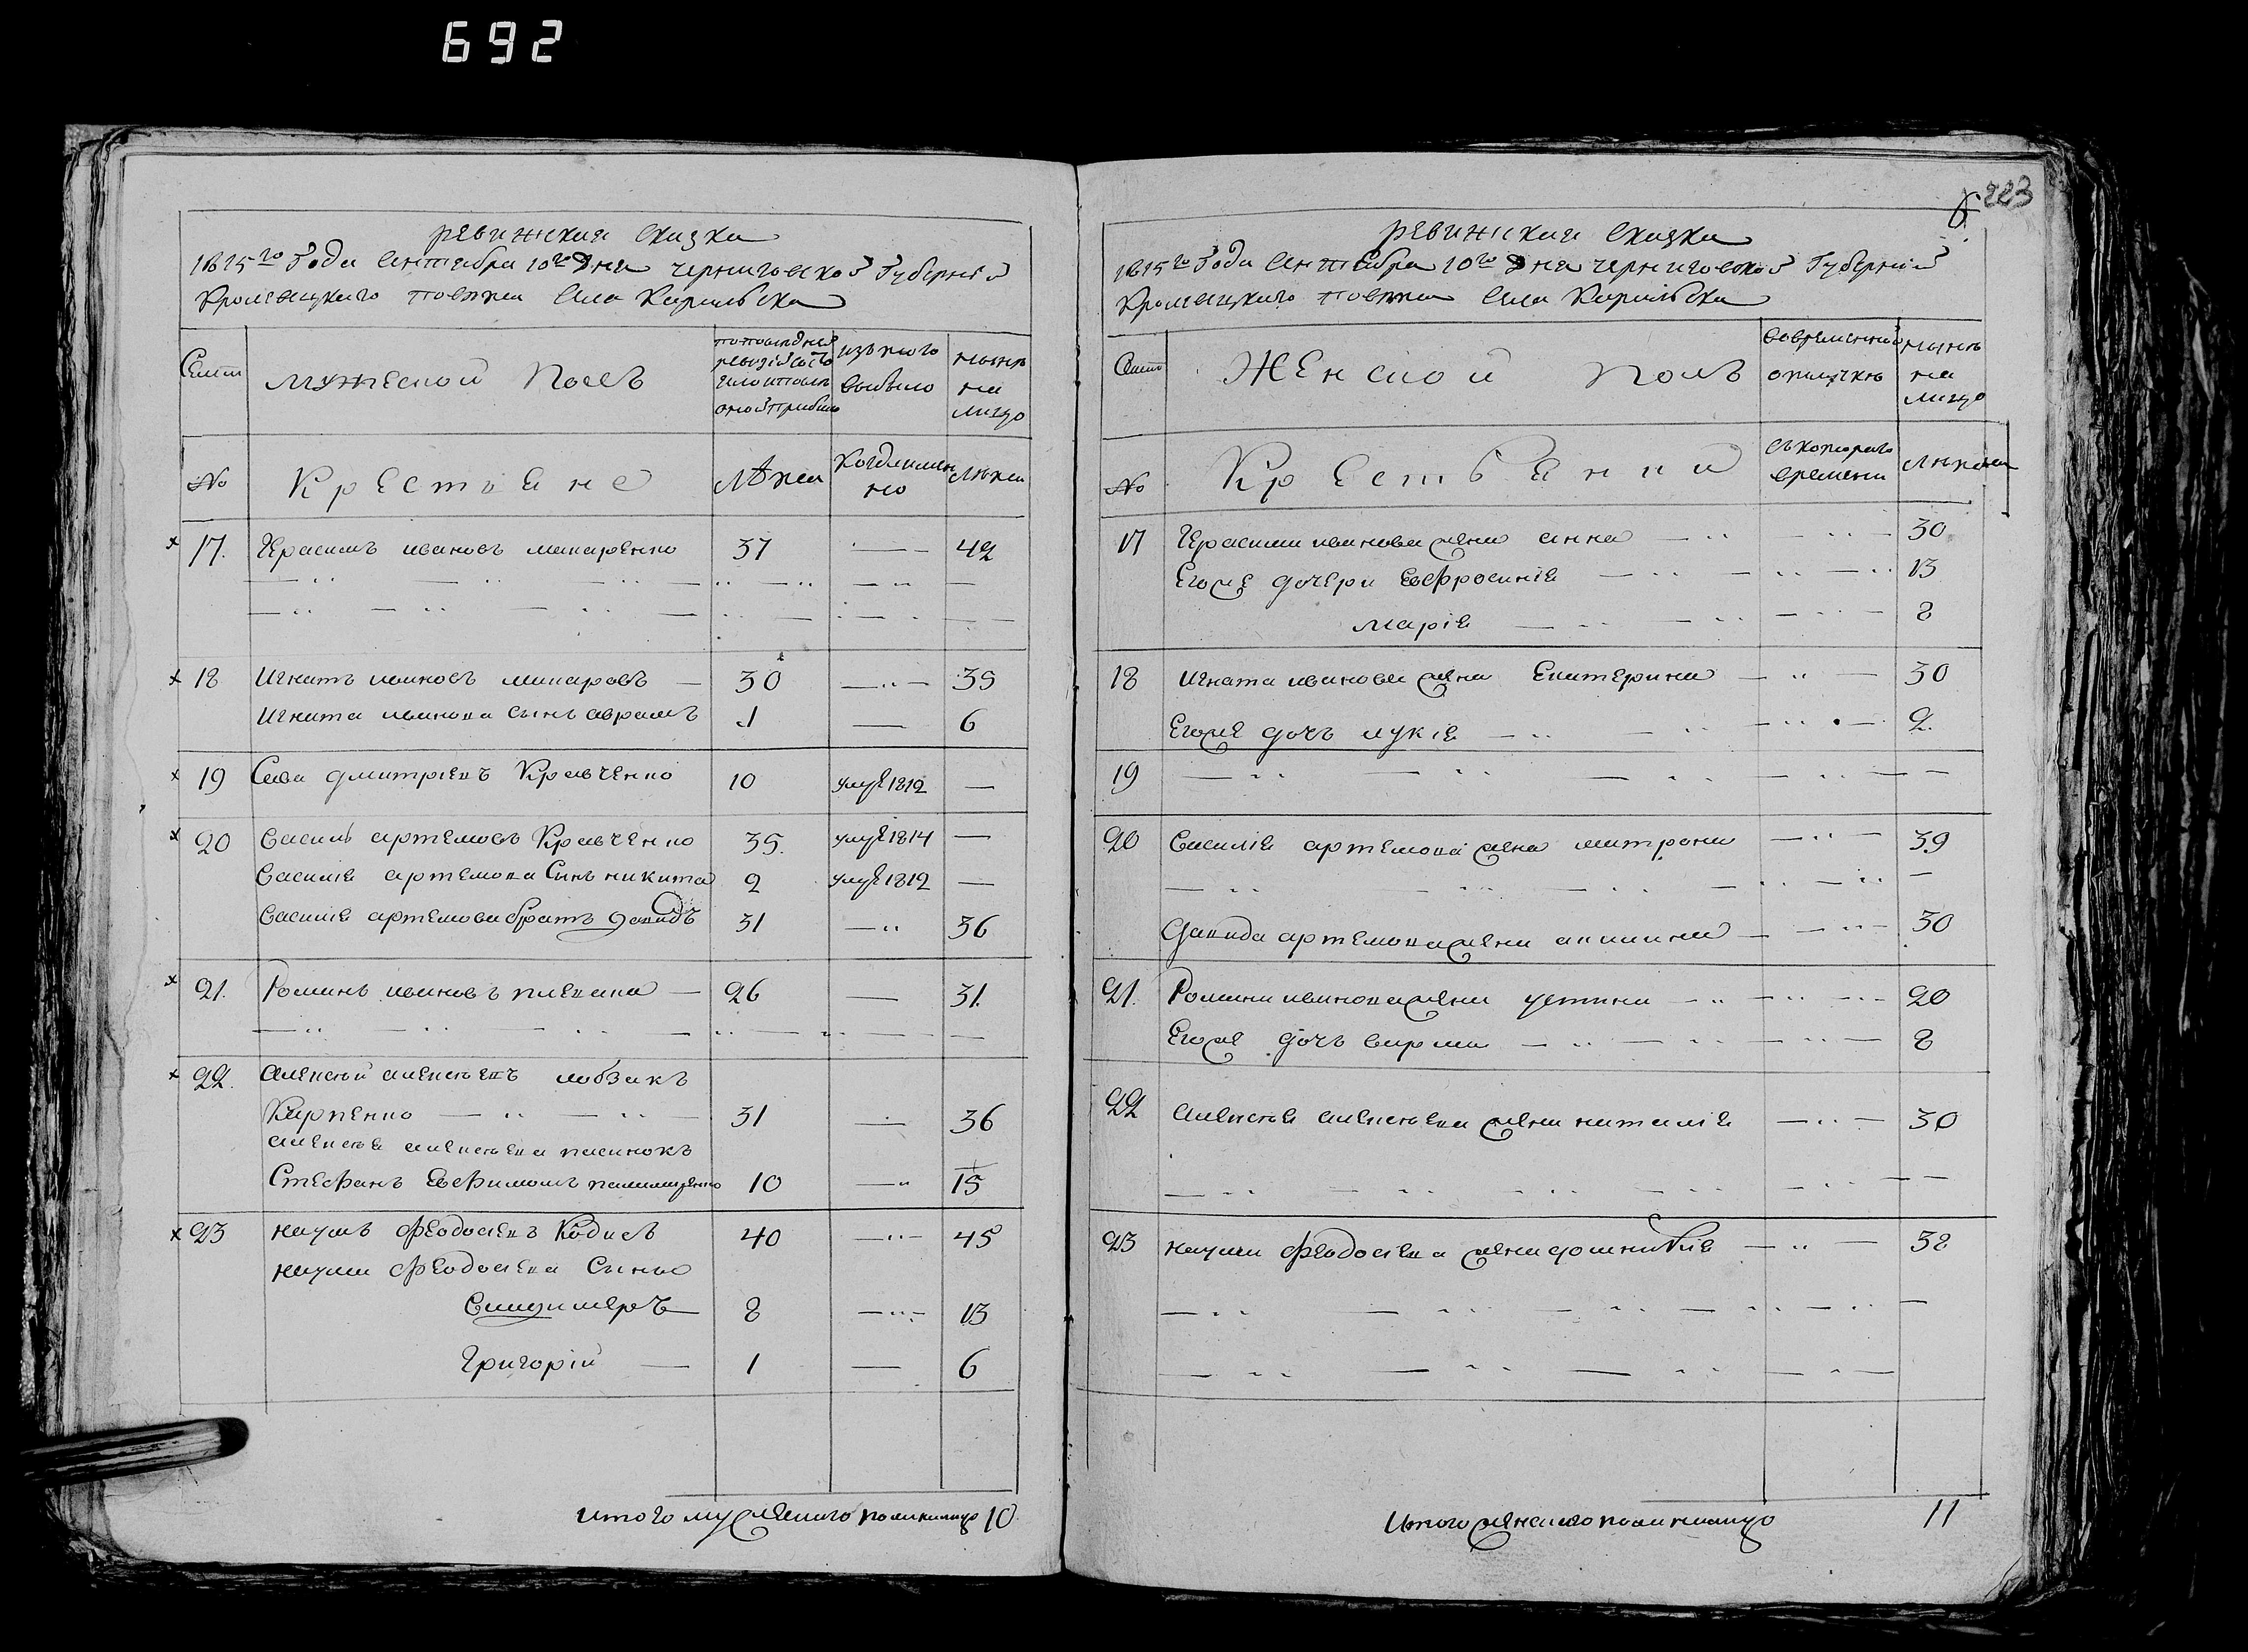 692
ревижская сказка
1815го Года Сентебра 10го Дня Черниговской Губернии
Кролевецкаго повета Села Кирильска
Семи
мужеской Полъ
изъ того
выбыло
ныне
на
лицо
№
Крестьяне
лета
Когда имен
но
лета
17. Герасимъ ивановъ макаренко 37 42
18 Игнатъ ивановъ макаровъ 30 35
Игната иванова сынъ аврамъ 1 6
19 Сава дмитріевъ Кравченко 10 умре 1812
20 Василь артемовъ Кравченко 35. умре 1814
Василіе артемова Синъ никита 2 умре 1812
Василіе артемова братъ давидъ 31 36
21. Романъ ивановъ 26 31.
22. алексей алексеевъ
Карпенко 31 36
алексея алексеева пасинокъ
Стефанъ Евфимовъ 10 15
23 наумъ феодосіевъ 40 45
наума феодосіева Сины
Владимеръ 8 13
Григорій 1 6
итого мужеского пола налицо 10
223
6
ревижская сказка
1815го Года Сентебра 10го Дня Черниговской Губерніи
Кролевецкаго повета Села Кирильска
Семи
Женской полъ
вовременной
отлучке
ныне
на
лицо
№
Крестьянки
съ котораго
времени
лета
17 Герасима иванова жена анна 30
Егоже дочери Евфросиніе 13
Маріе 8
18 игната иванова жена Екатерина 30
Егоже дочь лукіе 2.
19
20 Василіе артемова жена митрона 39
Давида артемова жена акилина 30
21. Романа иванова жена устина 20
Егоже дочь варка 8
22 алексея алексеева жена наталіе 30
23 наума феодосіева жена домникіе 38
Итого женского пола налицо 11